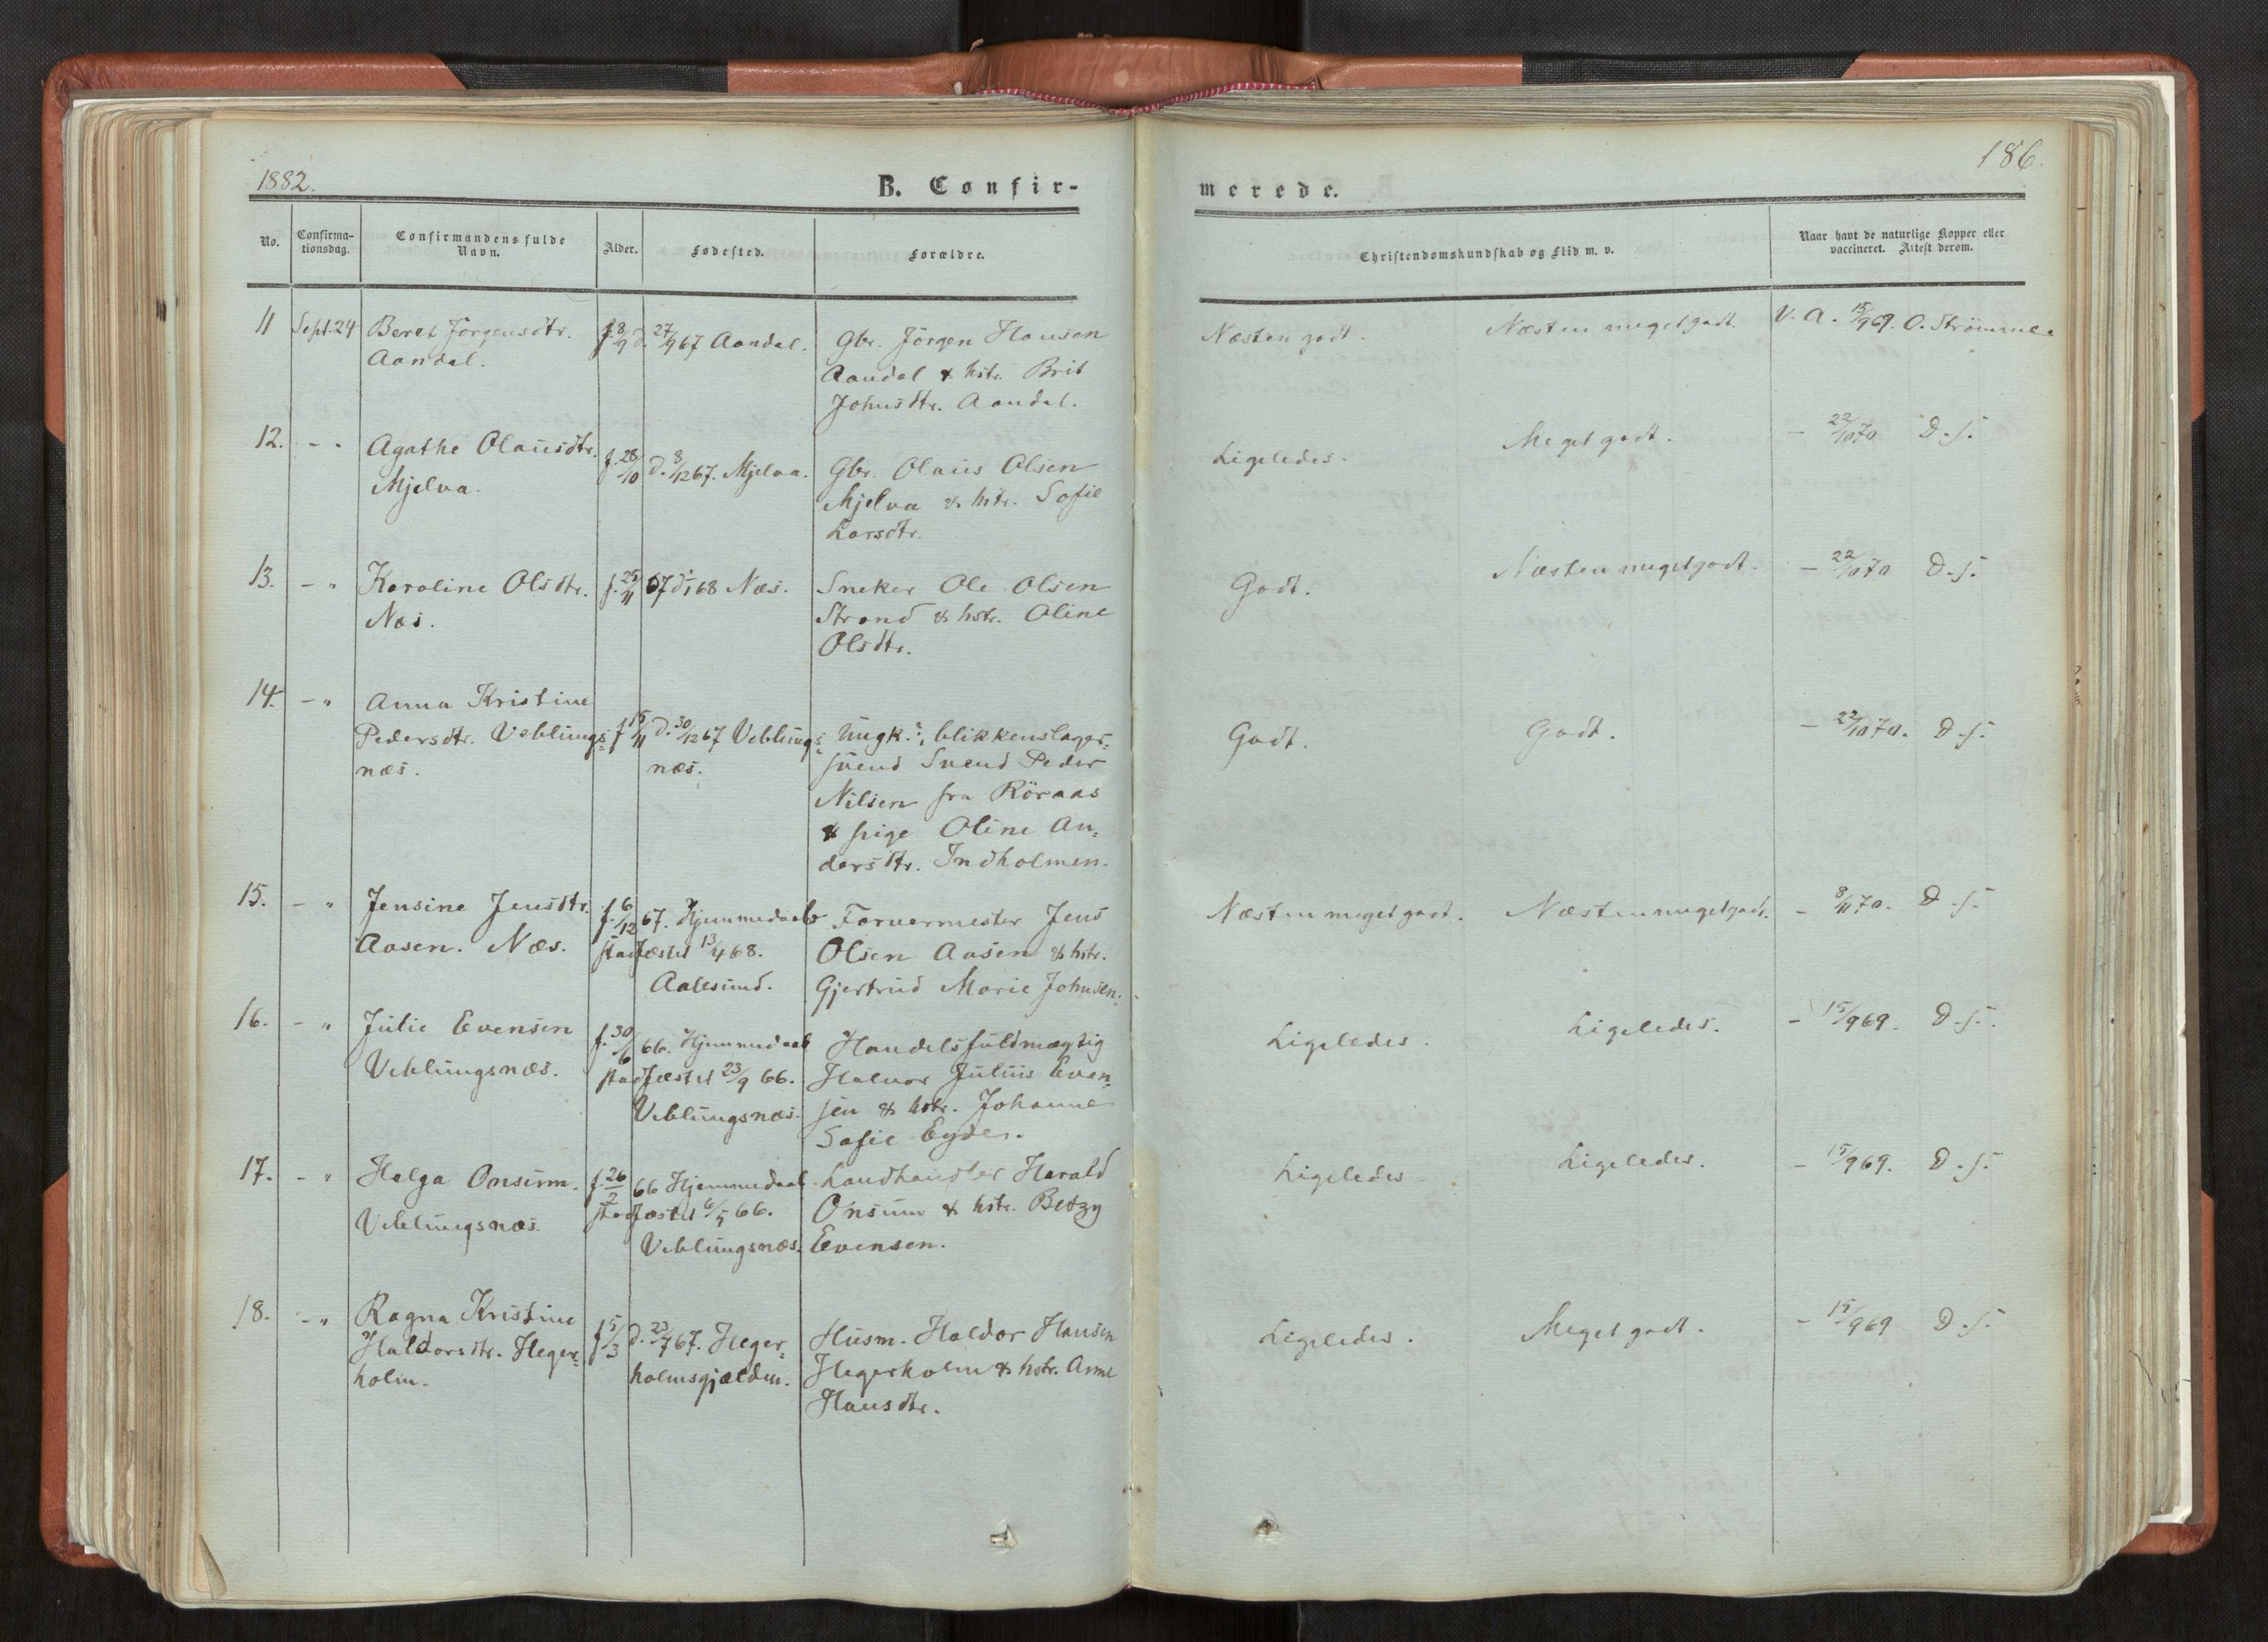 1882.
B. Confir-
No.
Confirma-
tionsdag.
Confirmandens fulde
Navn.
Alder.
Fødested.
Forældre.
11 Sept. 24 Beret Jörgensdtr. f. 8/9 d. 27/9 67 Aandal. Gbr. Jörgen Hansen
Aandal. Aandal & hstr. Brit
Johnsdtr. Aandal.
12. - " Agathe Olausdtr. f. 28/10 d. 8/12 67. Mjelva. Gbr. Olaus Olsen
Mjelva. Mjelva & hstr. Sofie
Larsdtr.
13. - " Karoline Olsdtr. f. 25/11 67 d. 68 Næs. Sneker Ole Olsen
Næs. Strand & hstr. Oline
Olsdtr.
14. - " Anna Kristine
Pedersdtr. Veblungs- f 15/11 d. 30/12 67 Veblungs- Ungk. blikkenslager-
næs. næs. svend Svend Peder
Nilsen fra Röraas
& pige Oline An-
dersdtr. Indholmen.
15. - " Jensine Jensdtr. f. 6/12 67. Hjemmedaab Farvermester Jens
Aasen. Næs. stadfæstet 13/4 68. Olsen Aasen & hstr.
Aalesund. Gjertrud Marie Johnsen.
16. - " Julie Evensen f. 30/6 66. Hjemmedaab Handelsfuldmægtig
Veblungsnæs. stadfæstet 23/9 66. Halvor Julius Even-
Veblungsnæs. sen & hstr. Johanne
Sofie Eyde.
17. - " Helga Onsum. f. 26/2 66 Hjemmedaab Landhandler Harald
Veblungsnæs. stadfæstet 6/5 66. Onsum & hstr. Betzy
Veblungsnæs. Evensen.
18. - " Ragna Kristine
Haldorsdtr. Heger- f 5/3 d. 23/7 67. Heger- Husm. Haldor Hansen
holm. holmsgjælden. Hegerholm & hstr. Anne
Hansdtr.
186.
merede.
Christendomskundskab og Flid m. v.
Naar havt de naturlige Kopper eller
vaccineret. Attest derom.
Næsten godt. Næsten meget godt. V. A. 15/9 69. O. Strömme.
Ligeledes. Meget godt. - 22/10 70 D. s.
Godt. Næsten meget godt. - 22/10 70 D. s.
Godt. Godt. - 22/10 70. D. s.
Næsten meget godt. Næsten meget godt. - 8/11 70. D. s.
Ligeledes. Ligeledes. - 15/9 69. D. s.
Ligeledes Ligeledes. - 15/9 69. D. s.
Ligeledes. Meget godt. - 15/9 69 D. s.